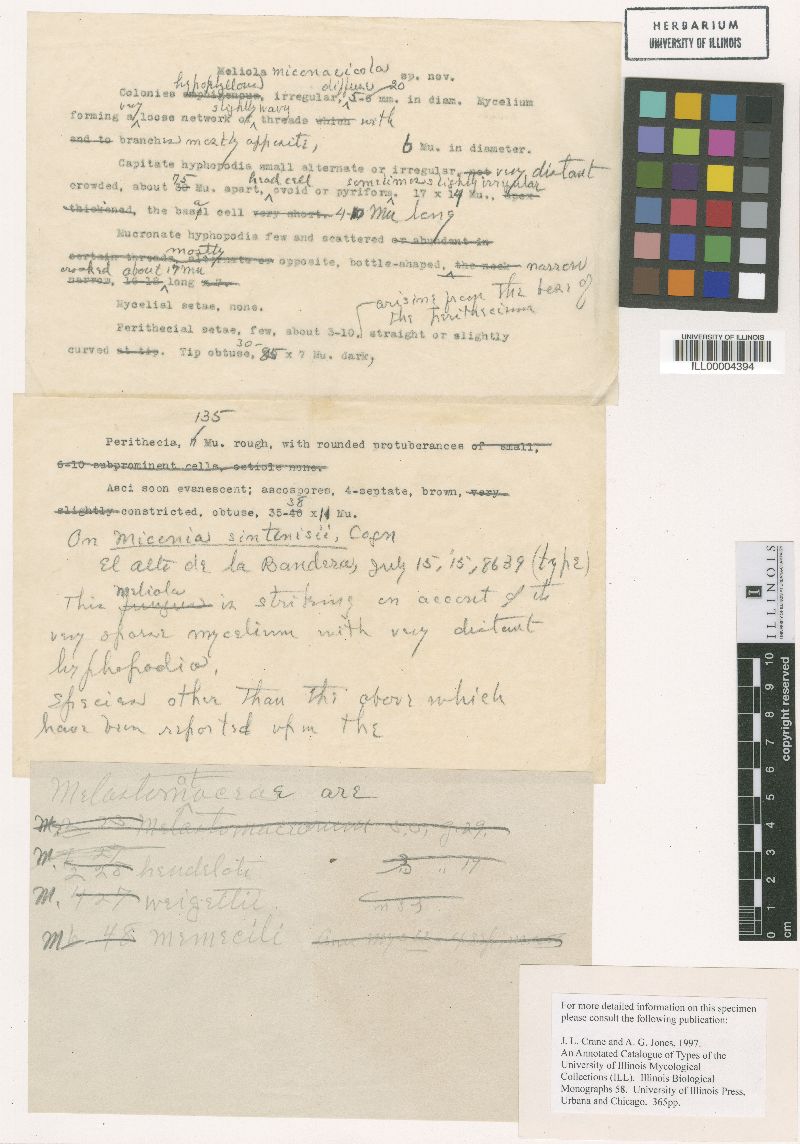 HERBARIUM
UNIVERSITY OF ILLINOIS
Meliola miconaeicola sp. nov.
hypophyllous diffuse 20
Colonies amphigenous, irregular, 5-6 mm. in diam. Mycelium
very slightly wavy
forming a loose network of threads which with
and to branches mostly opposite, 6 Mu. in diameter.
Capitate hyphopodia small alternate or irregular, not very distant
75 head cell sometimes slightly irregular
crowded, about 30 Mu. apart, ovoid or pyriform. 17 x 14 Mu., apex
thickened, the basal cell very short. 4-10 Mu long
Mucronate hyphopodia few and scattered or abundant in
mostly
certain threads, alternate or opposite, bottle-shaped, the neck narrow
crooked about 17 Mu
narrow, long
arising from the base of
the perithecium
Mycelial setae, none.
Perithecial setae, few, about 3-10, straight or slightly
30-
curved at tip. Tip obtuse, 85 x 7 Mu. dark,
135
Perithecia, Mu. rough, with rounded protuberances of small,
6-10 subprominent cells, ostiole none.
Asci soon evanescent; ascospores, 4-septate, brown, very
38
slightly constricted, obtuse, 35-40 x 14 Mu.
On Miconia sintenisii, Cogn
El alto de la Bandera, July 15, '15, 8639 (type)
Meliola
This is striking on account of its
very sparse mycelium with very distant
hyphopodia.
Species other than the above which
have been reported upon the
Melastomataceae are
M. 23 Melastomacearum
M. 28 heudeloti 17
M. 427 weigeltii
M. 48 memecili
UNIVERSITY OF ILLINOIS
ILL00004394
ILLINOIS
copyright reserved
10
9
8
7
6
5
4
3
2
1
0
cm
For more detailed information on this specimen
please consult the following publication:
J. L. Crane and A. G. Jones, 1997.
An Annotated Catalogue of Types of the
University of Illinois Mycological
Collections (ILL). Illinois Biological
Monographs 58. University of Illinois Press,
Urbana and Chicago. 365pp.